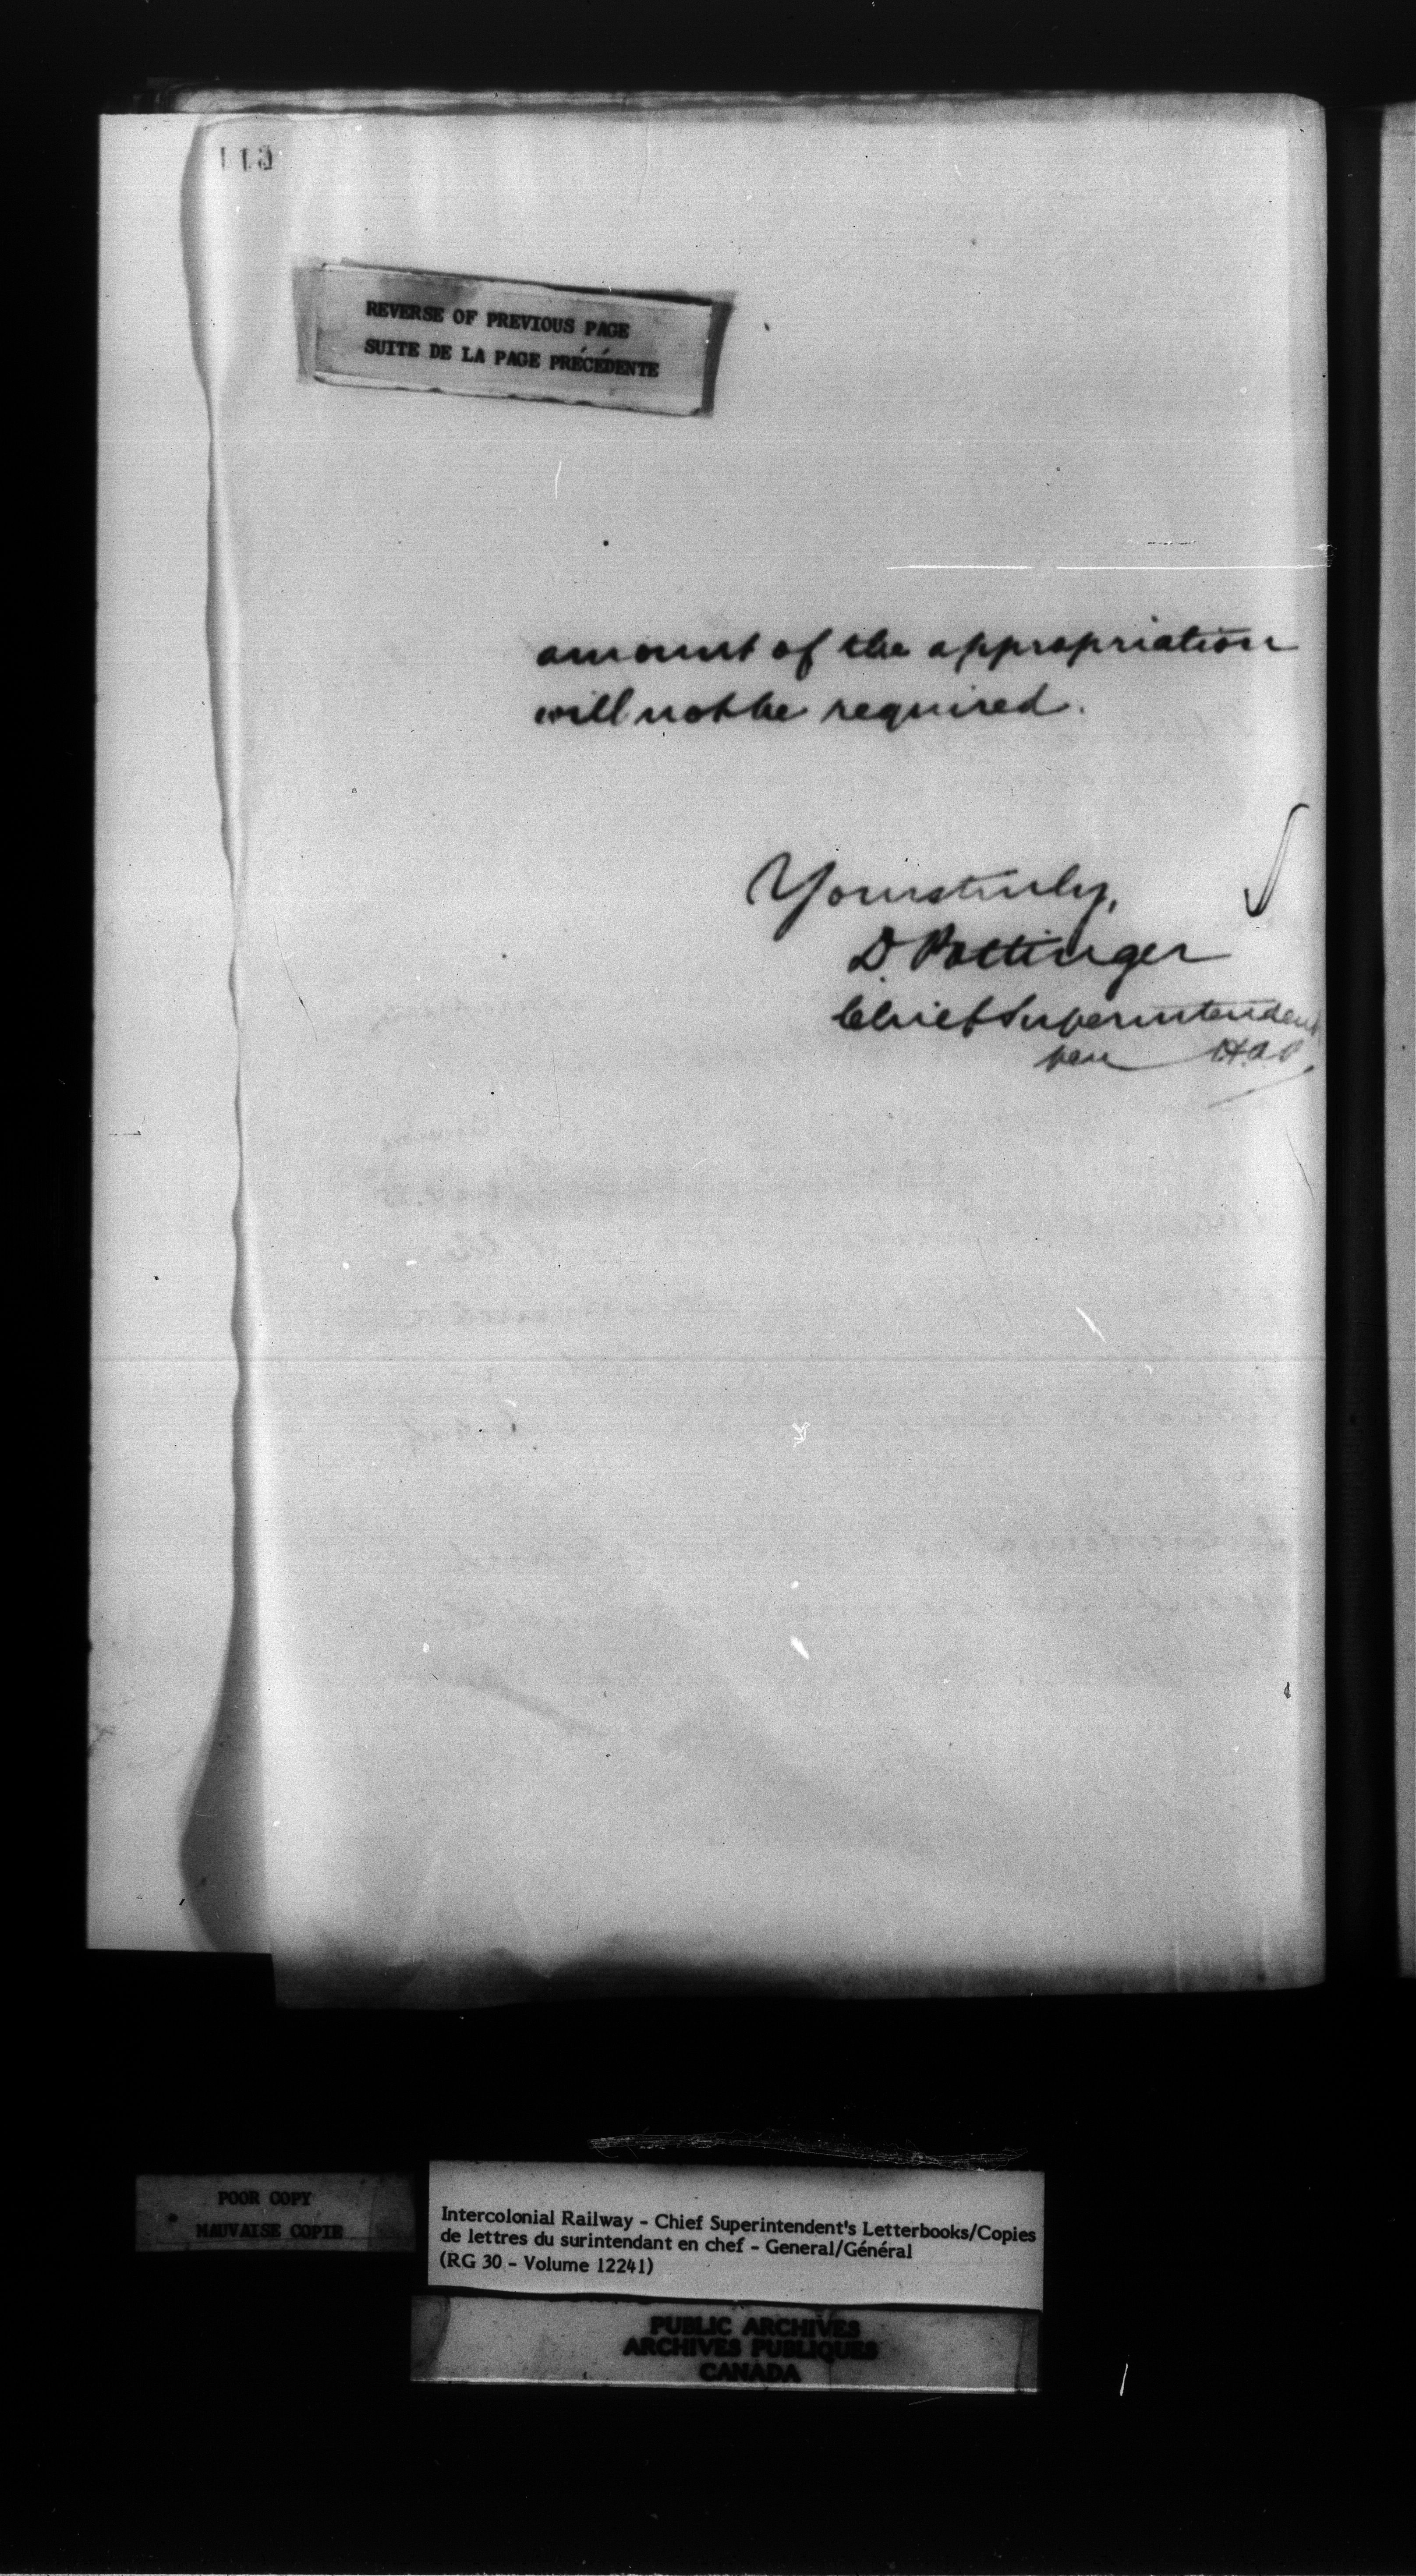 113
REVERSE OF PREVIOUS PAGE
SUITE DE LA PAGE PRÉCÉDENTE
amount of the appropriation
will not be required.
Yours truly,
D. Pottinger
Chief Superintendent
per
POOR COPY
MAUVAISE COPIE
Intercolonial Railway - Chief Superintendent's Letterbooks/Copies
de lettres du surintendant en chef - General/Général
(RG 30 - Volume 12241)
PUBLIC ARCHIVES
ARCHIVES PUBLIQUES
CANADA